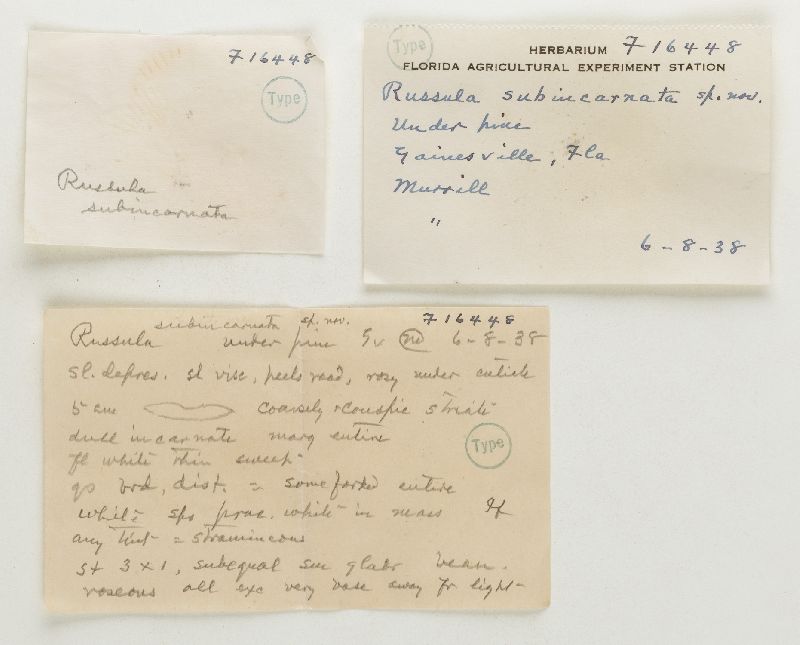 F16448
Type
Russula
subincarnata
Type
HERBARIUM F16448
FLORIDA AGRICULTURAL EXPERIMENT STATION
Russula subincarnata sp. nov.
Under pine
Gainesville, Fla
Murrill
"
6-8-38
subincarnata sp. nov. F16448
Russula under pine Gv 6-8-38
sl. depres. sl visc, peels read, rosy under cuticle
5 cm coarsely & conspic striate
dull incarnate marg entire
fl white thin sweet
Type
gs brd, dist. = some forked entire
white sps prac. white in mass If
any tint = stramineous
st 3 x 1, subequal sm glabr
roseous all exc very base away fr light